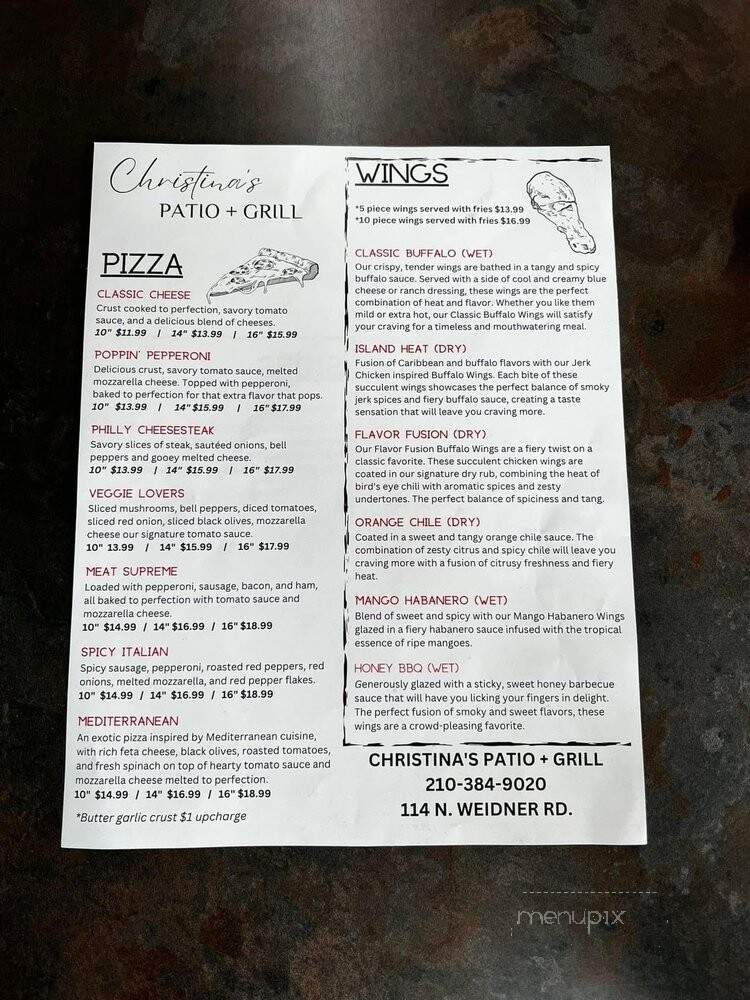 Christina's
PATIO + GRILL
PIZZA
CLASSIC CHEESE
Crust cooked to perfection, savory tomato
sauce, and a delicious blend of cheeses.
10" $11.99 / 14" $13.99 / 16" $15.99
POPPIN' PEPPERONI
Delicious crust, savory tomato sauce, melted
mozzarella cheese. Topped with pepperoni,
baked to perfection for that extra flavor that pops.
10" $13.99 / 14" $15.99 / 16" $17.99
PHILLY CHEESESTEAK
Savory slices of steak, sautéed onions, bell
peppers and gooey melted cheese.
10" $13.99 / 14" $15.99 / 16" $17.99
VEGGIE LOVERS
Sliced mushrooms, bell peppers, diced tomatoes,
sliced red onion, sliced black olives, mozzarella
cheese our signature tomato sauce.
10" 13.99 / 14" $15.99 / 16" $17.99
MEAT SUPREME
Loaded with pepperoni, sausage, bacon, and ham,
all baked to perfection with tomato sauce and
mozzarella cheese.
10" $14.99 / 14" $16.99 / 16" $18.99
SPICY ITALIAN
Spicy sausage, pepperoni, roasted red peppers, red
onions, melted mozzarella, and red pepper flakes.
10" $14.99 / 14" $16.99 / 16" $18.99
MEDITERRANEAN
An exotic pizza inspired by Mediterranean cuisine,
with rich feta cheese, black olives, roasted tomatoes,
and fresh spinach on top of hearty tomato sauce and
mozzarella cheese melted to perfection.
10" $14.99 / 14" $16.99 / 16" $18.99
*Butter garlic crust $1 upcharge
WINGS
*5 piece wings served with fries $13.99
*10 piece wings served with fries $16.99
CLASSIC BUFFALO (WET)
Our crispy, tender wings are bathed in a tangy and spicy
buffalo sauce. Served with a side of cool and creamy blue
cheese or ranch dressing, these wings are the perfect
combination of heat and flavor. Whether you like them
mild or extra hot, our Classic Buffalo Wings will satisfy
your craving for a timeless and mouthwatering meal.
ISLAND HEAT (DRY)
Fusion of Caribbean and buffalo flavors with our Jerk
Chicken inspired Buffalo Wings. Each bite of these
succulent wings showcases the perfect balance of smoky
jerk spices and fiery buffalo sauce, creating a taste
sensation that will leave you craving more.
FLAVOR FUSION (DRY)
Our Flavor Fusion Buffalo Wings are a fiery twist on a
classic favorite. These succulent chicken wings are
coated in our signature dry rub, combining the heat of
bird's eye chili with aromatic spices and zesty
undertones. The perfect balance of spiciness and tang.
ORANGE CHILE (DRY)
Coated in a sweet and tangy orange chile sauce. The
combination of zesty citrus and spicy chile will leave you
craving more with a fusion of citrusy freshness and fiery
heat.
MANGO HABANERO (WET)
Blend of sweet and spicy with our Mango Habanero Wings
glazed in a fiery habanero sauce infused with the tropical
essence of ripe mangoes.
HONEY BBQ (WET)
Generously glazed with a sticky, sweet honey barbecue
sauce that will have you licking your fingers in delight.
The perfect fusion of smoky and sweet flavors, these
wings are a crowd-pleasing favorite.
CHRISTINA'S PATIO + GRILL
210-384-9020
114 N. WEIDNER RD.
menupix